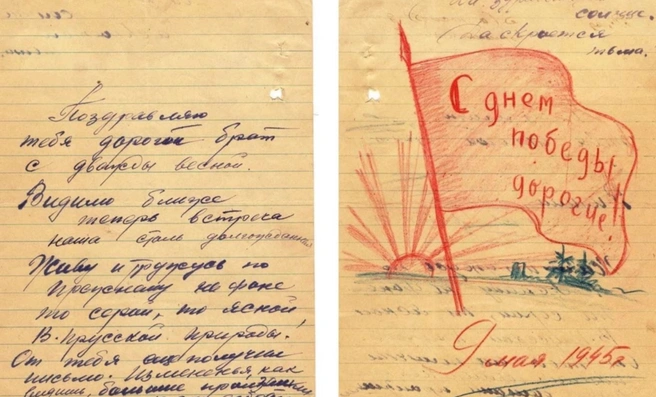 Поздравляю
тебя дорогой брат
с дважды весной.
Видимо ближе
теперь встреча
наша столь долгожданная
Живу и тружусь по
Прежнему на фоне
то серой, то ясной,
В. Прусской природы.
От тебя ещё получил
письмо. Изменения, как
видишь, большие
солнце.
скроется
тьма.
С днем
победы
дорогие!
9 мая 1945г